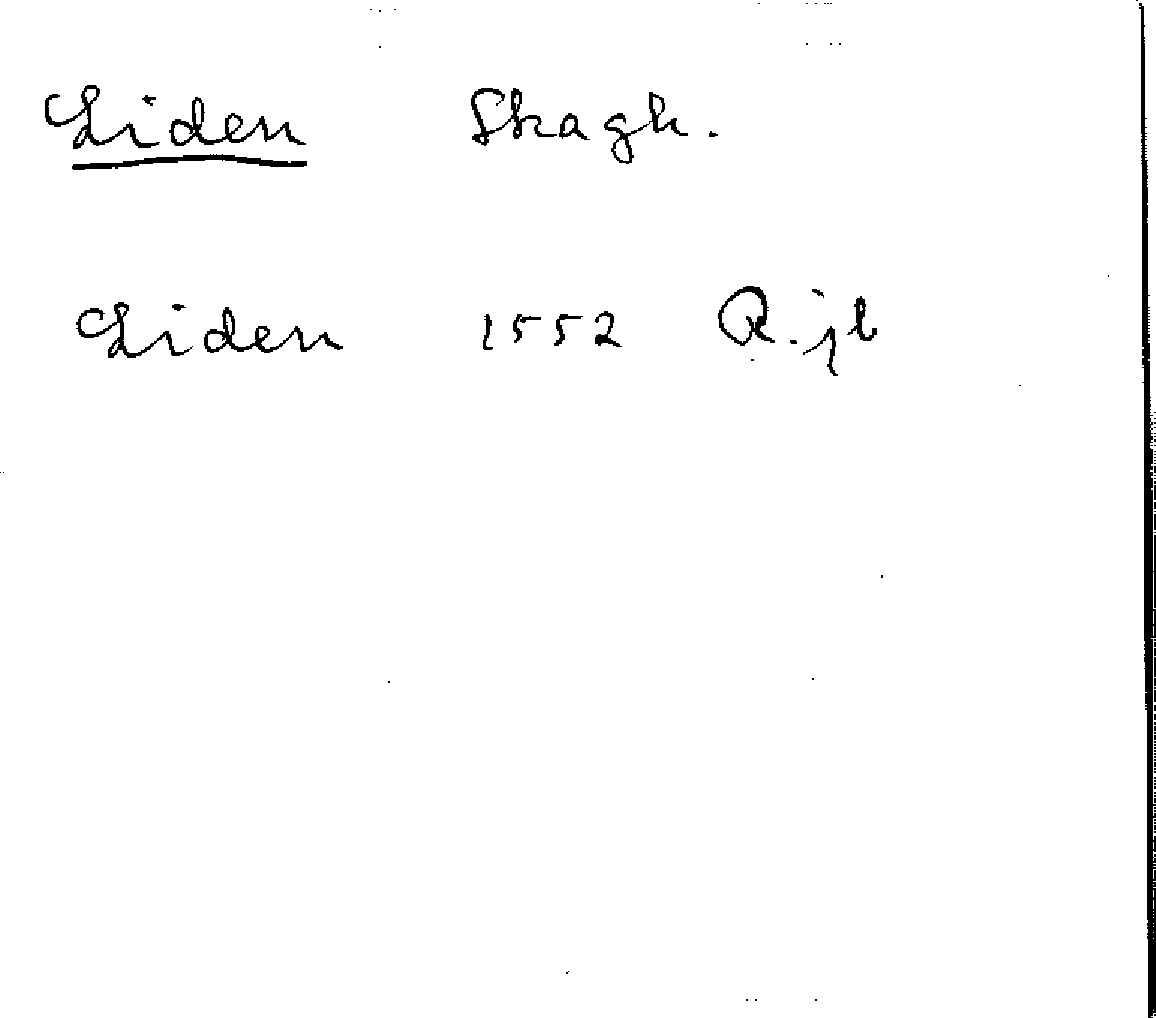 Liden Skagh.
Liden 1552 R.jb